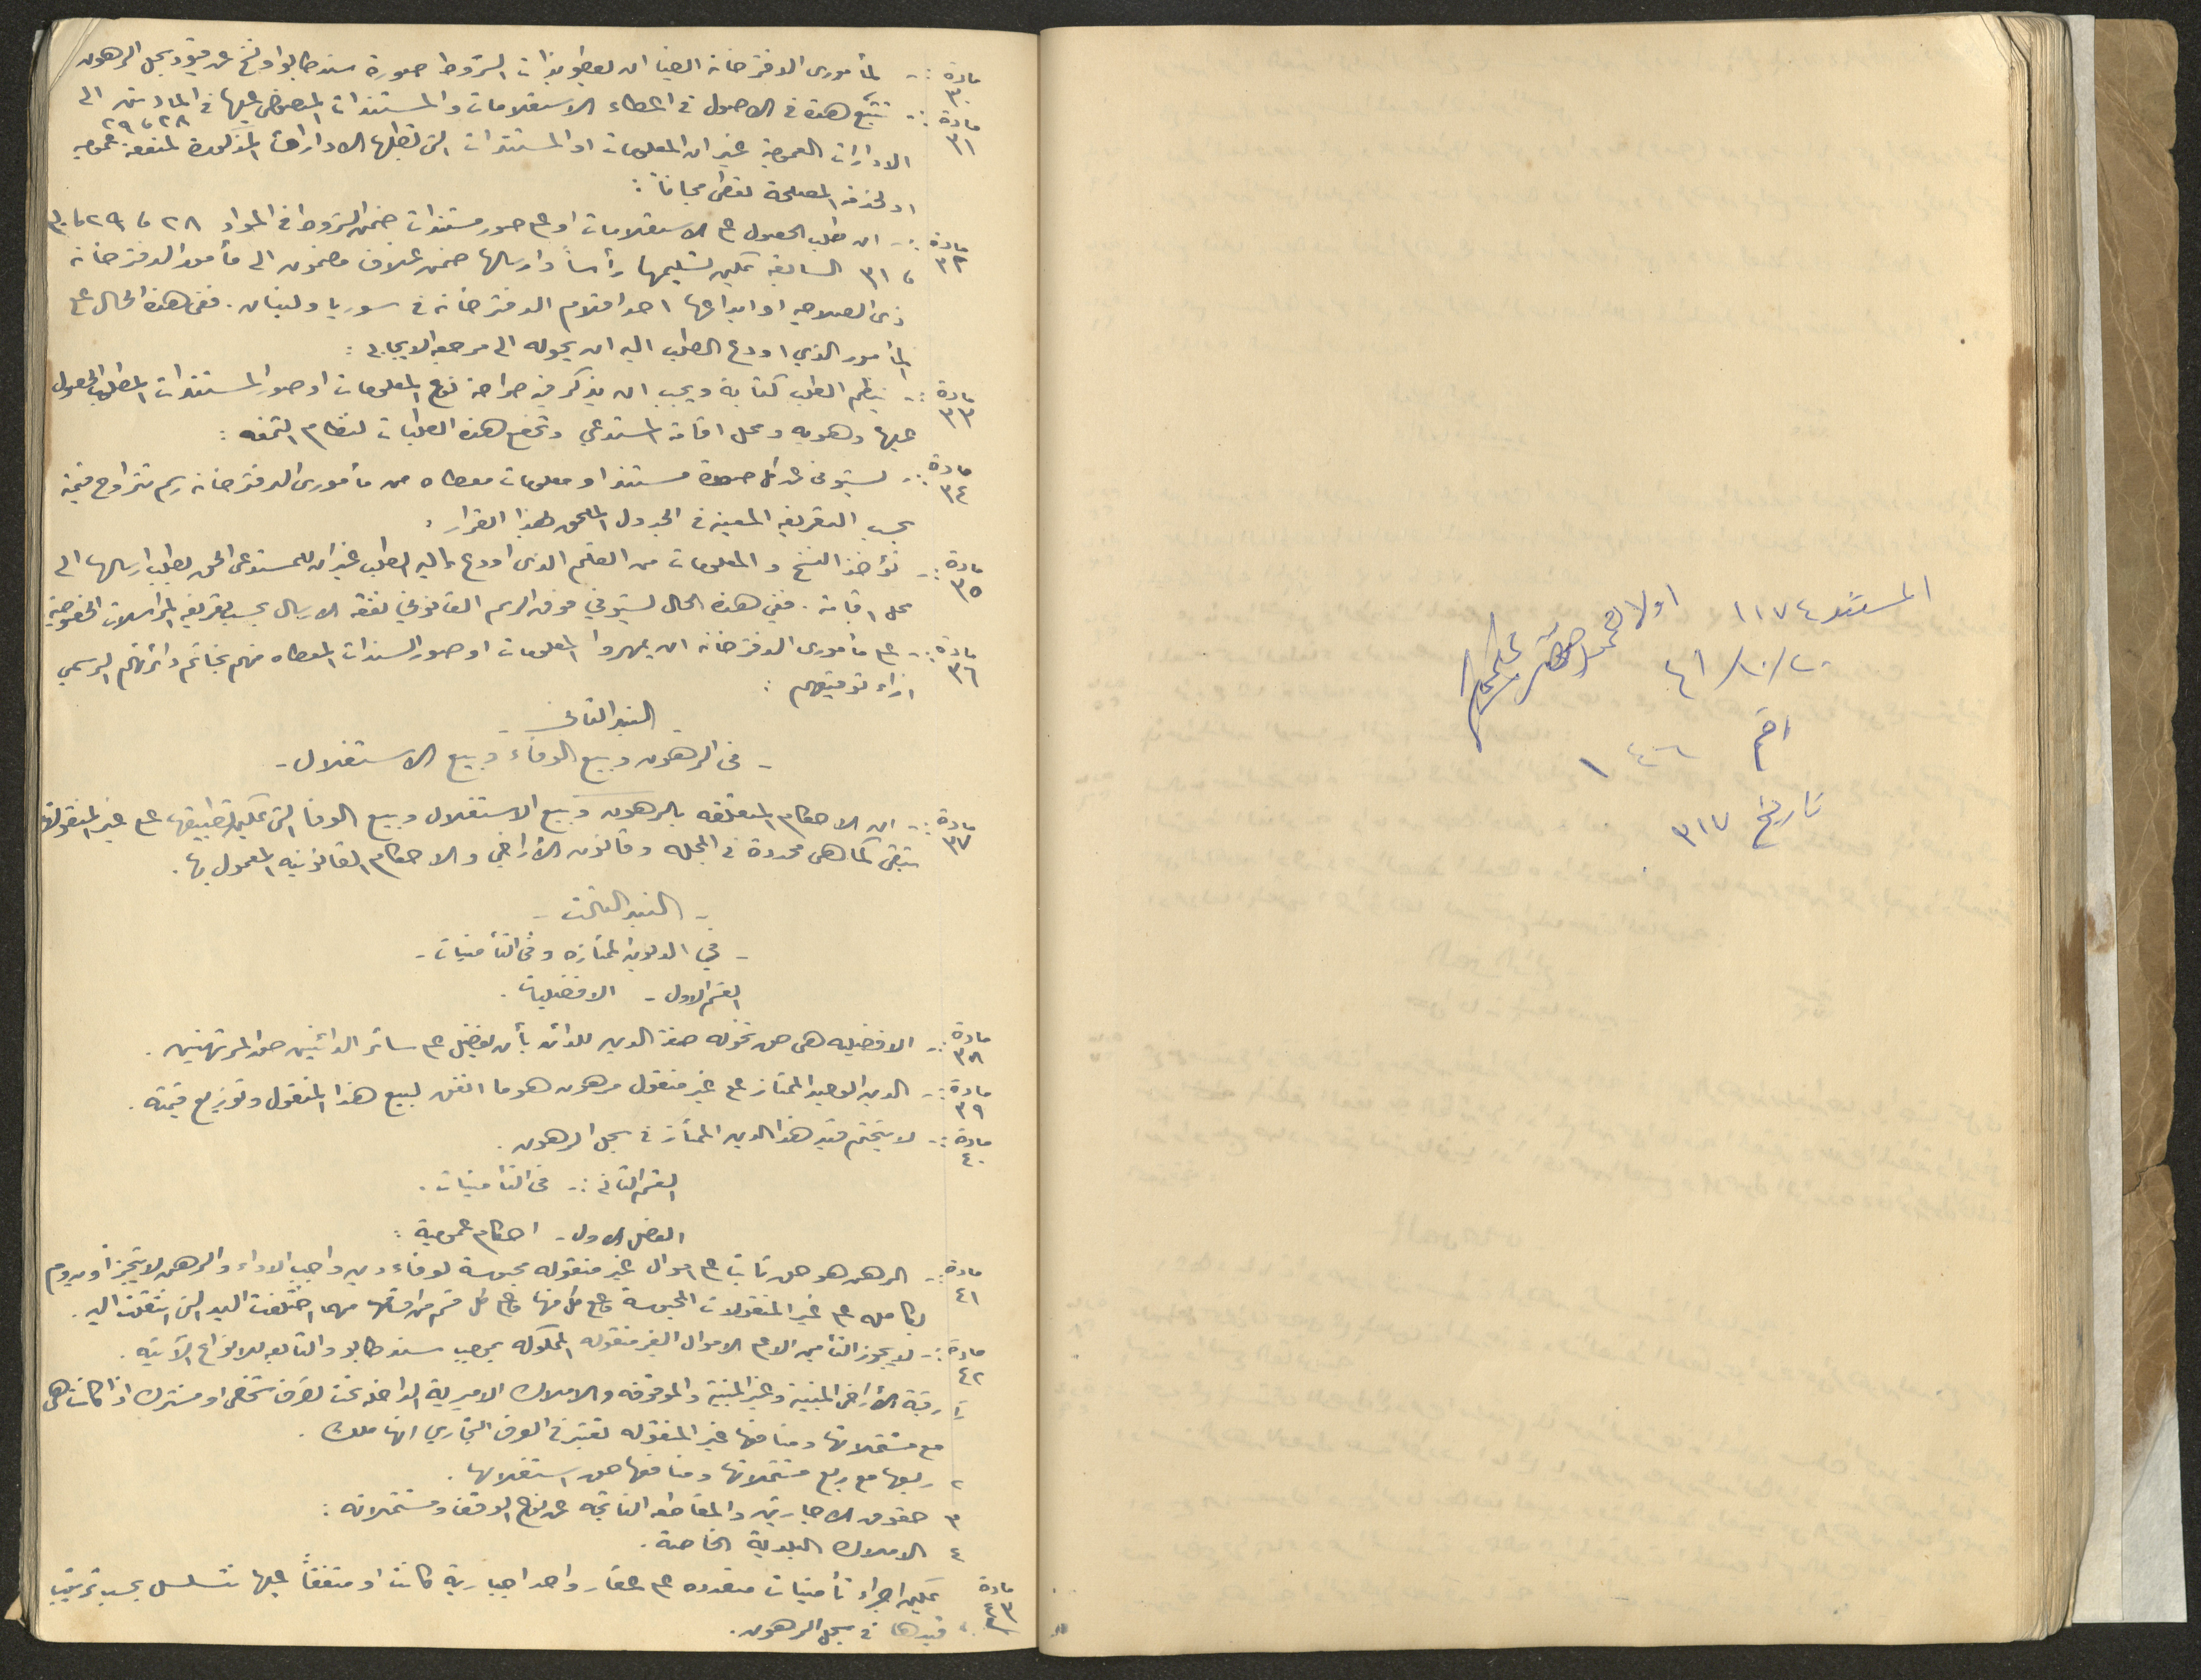 المستند ١١٧٤
٤١/١٠/٢٠
تاريخ ٣١٧
مادة ٣٠ :- لمأموري الدفترخانة ايضا ان يعطوا بذات الشروط صورة سند طابو او نسخ عن قيود سجل الرهون
مادة ٣١ :- تتبع هذه في الاصول في اعطاء الاستعلامات والمستندات المنصوص عليها في المادتين ٢٨ و ٢٩ الى
الادارات العمومية غير ان المعلومات او المستندات التي تطلبها الادارات المذكورة لمنفعة عمومية
او لخدمة المصلحة تعطى مجاناً :
مادة ٣٢ :- ان طلب الحصول على الاستعلامات او على صور مستندات ضمن الشروط في المواد ٢٨ و ٢٩ و ٣٠
و ٣١ السابقة يمكن تسليمها رأساً وارسالها ضمن غلاف مضمون الى مأمور الدفترخانة
ذي الصلاحية او ايداعها احد اقلام الدفترخانة في سوريا ولبنان . ففي هذه الحال على
المأمور الذي اودع الطلب اليه ان يحوله الى مرجعه الايجابي :
مادة ٣٣ :- ينظم الطلب كتابة ويجب ان يذكر فيه صراحة نوع المعلومات او صور المستندات المطلوب الحصول
عليها وهوية ومحل اقامة المستدعي وتخضع هذه الطلبات لنظام التمغه :
مادة ٣٤ :- يستوفى عن كل صورة مستند او معلومات معطاه من مأموري الدفترخانة رسم تتراوح قيمته
بحسب التعريفه المعينه في الجدول الملحق بهذا القرار :
مادة ٣٥ :- تؤخذ النسخ و المعلومات من القلم الذي اودع اليه الطلب غير ان للمستدعي الحق بطلب ارسالها الى
محل اقامته . ففي هذه الحال يستوفى فوق الرسم القانوني نفقة الارسال بحسب تعريفة المراسلات الخصوصية
مادة ٣٦ :- على مأموري الدفترخانه ان يمهروا المعلومات او صور السندات المعطاه منهم بخاتم دائرتهم الرسمي
ازاء توقيعهم :
- البند الثاني -
- في الرهون وبيع الوفاء وبيع الاستغلال -
مادة ٣٧ :- ان الاحكام المتعلقه بالرهون وبيع الاستغلال وبيع الوفا التي يمكن تطبيقها على غير المنقولات
تبقى كما هي محددة في المجله وقانون الأراضي والاحكام القانونيه المعمول بها .
- البند الثالث -
- في الديون الممتازه وفي التأمينات -
القسم الاول - الافضليات .
مادة ٣٨ :- الافضليه هي حق تخوله صفة الدين للدائن بأن يفضل على سائر الدائنين حتى المرتهنين .
مادة ٣٩ :- الدين الوحيد الممتاز على غير منقول مرهون هو ما انفق لبيع هذا المنقول وتوزيع قيمته .
مادة ٤٠ :- لا يتحتم قيد هذا الدين الممتاز في سجل الرهون .
القسم الثاني :- في التأمينات .
الفصل الاول - احكام عمومية :
مادة ٤١ :- الرهن هو حق ثابت على اموال غير منقوله محبوسة لوفاء دين واجب الاداء والرهن لا يتجزأ ويدوم
بكامله على غير المنقولات المحبوسة وعلى كل منها وعلى كل قسم من اقسامها مهما اختلفت اليد التي انتقلت اليه .
مادة ٤٢ :- لا يجوز التأمين الا على الاموال الغير منقوله المملوكه بموجب سند طابو والتابعه للانواع الآتيه .
١ً رقبة الأراضي المبنية وغير المبنية والموقوفه والاملاك الاميرية الداخله تحت تصرف شخصي او مشترك اذا كانت هي
مع مشتملاتها ومنافعها غير المنقوله تعتبر في العرف التجاري انها ملك .
٢ ريعها مع ريع مشتملاتها ومنافعها حق استغلالها .
٣ حقوق الاجارتين والمقاطعه الناتجه عن نوع الوقف ومشتملاته :
٤ الاملاك البلدية الخاصة .
مادة ٤٣ يمكن اجراء تأمينات متعدده على عقار واحد اجبارية كانت او متفقاً عليها تتسلسل بحسب ترتيب
قيدها في سجل الرهون .